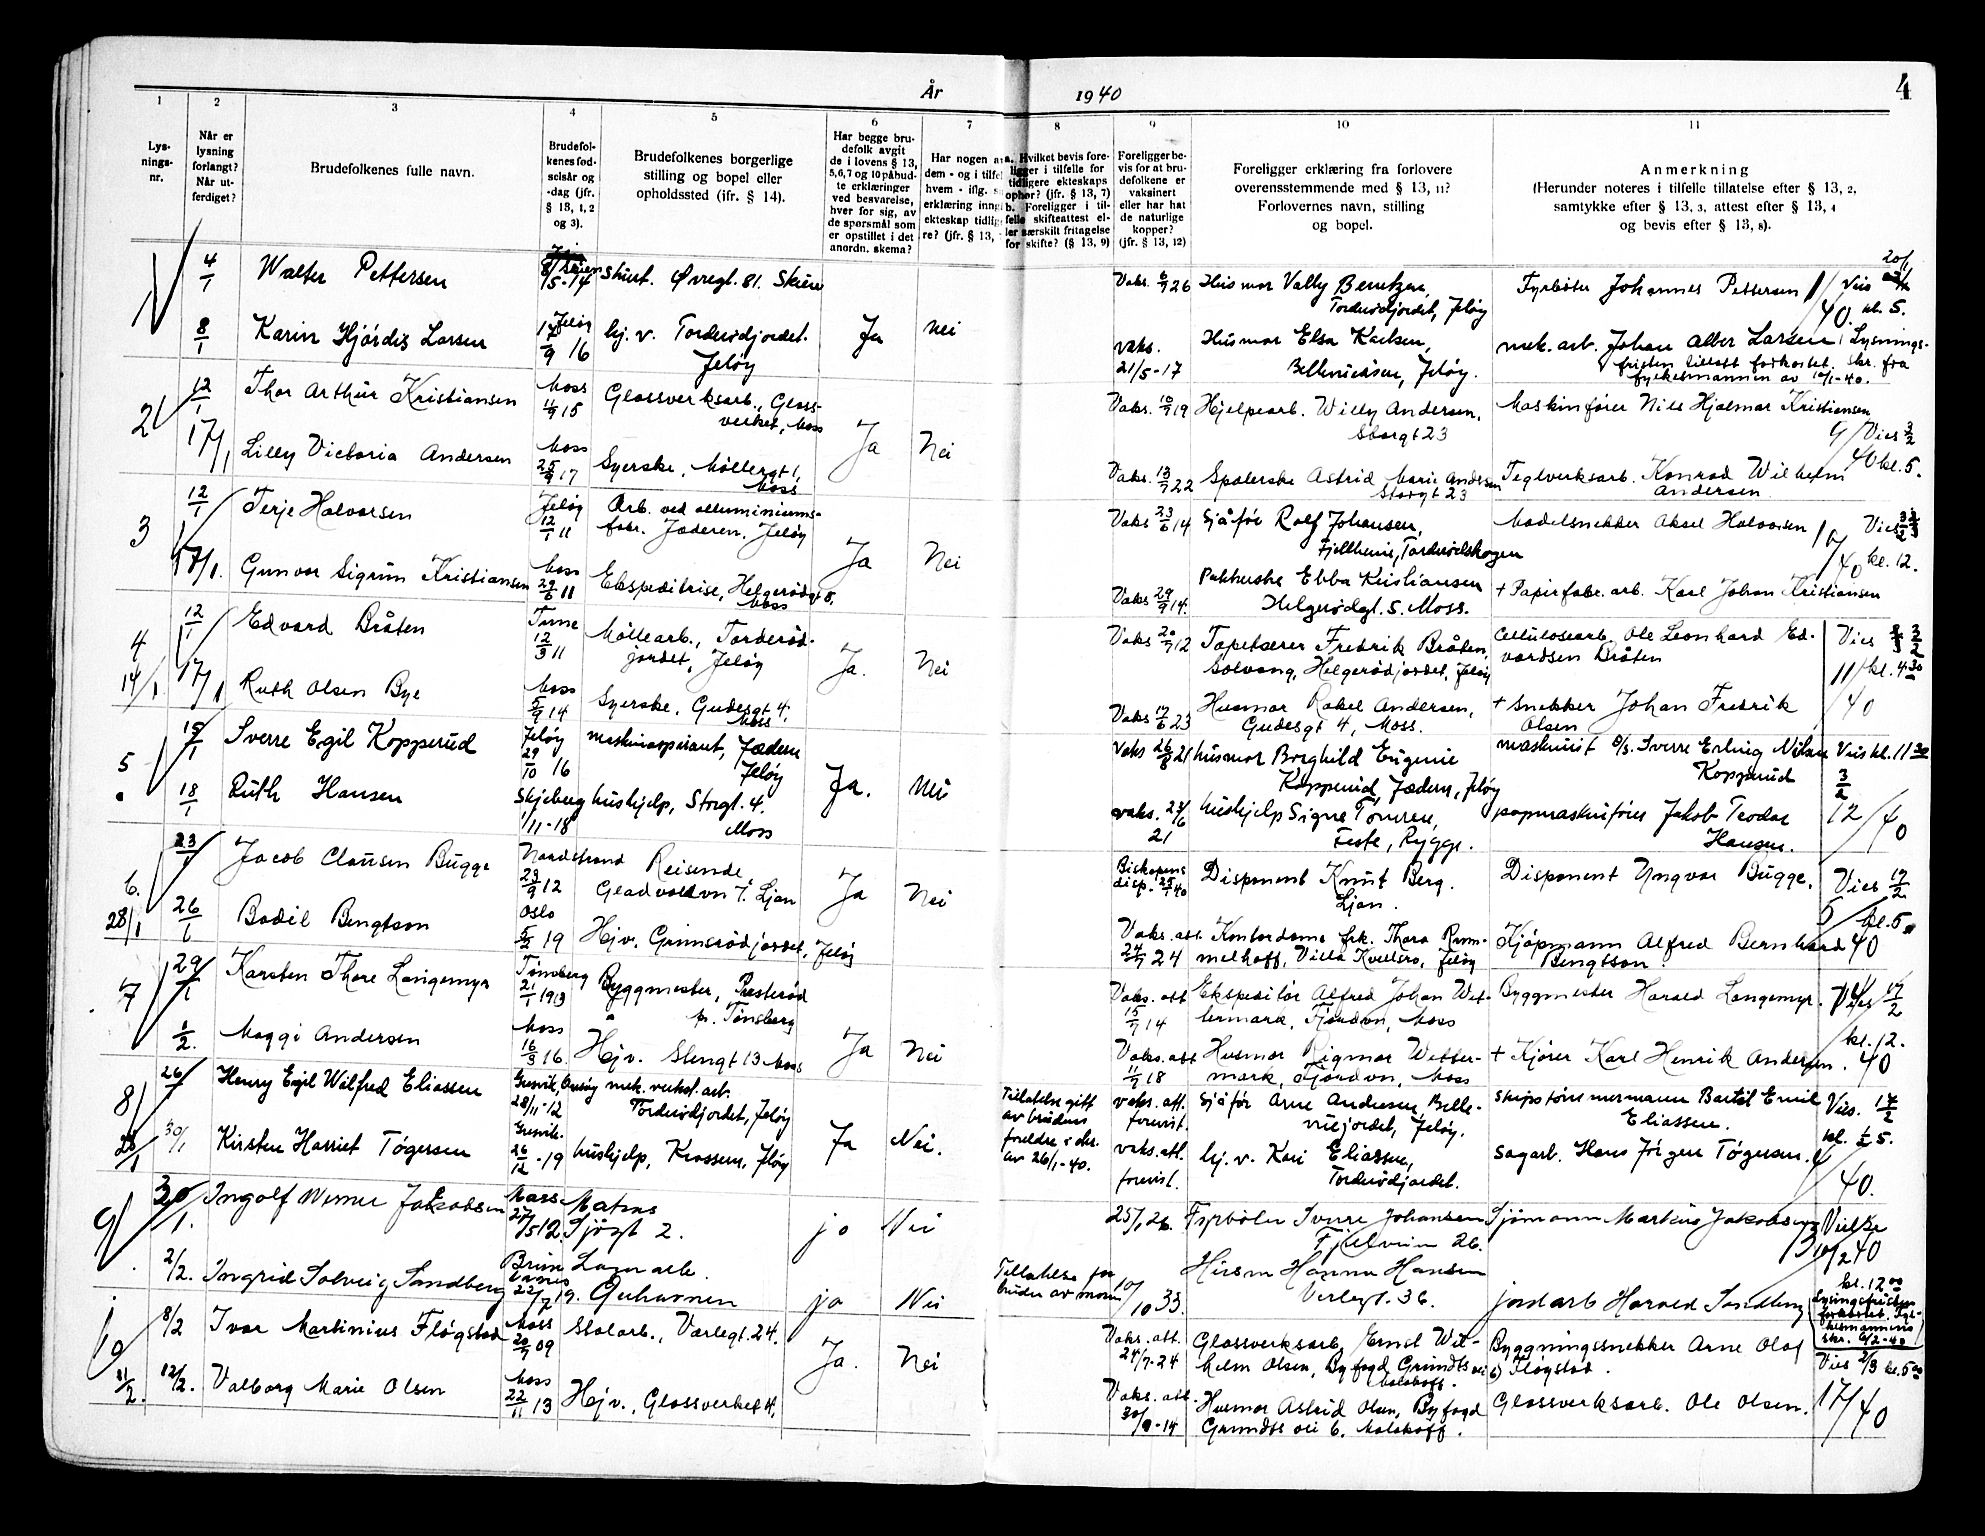 År 1940
4
1 2 3 4 5 6 7 8 9 10 11
Lys-
nings-
nr.
Når er
lysning
forlangt?
Når ut-
ferdiget?
Brudefolkenes fulle navn.
Brudefol-
kenes fød-
selsår og
-dag (jfr.
§ 13, 1, 2
og 3).
Brudefolkenes borgerlige
stilling og bopel eller
opholdssted (ifr. § 14).
Har begge bru-
defolk avgit
de i lovens § 13,
5,6,7 og 10 påbud-
te erklæringer
ved besvarelse,
hver for sig, av
de spørsmål som
er opstillet i det
anordn. skema?
Har nogen a
dem - og i tilfel
hvem - iflg.
erklæring inng
ekteskap tidlig
re? (jfr. § 13,
a. Hvilket bevis fore-
ligger i tilfelle for
tidligere ekteskaps
ophør? (jfr. § 13, 7)
b. Foreligger i til-
felle skifteattest el-
ler særskilt fritagelse
for skifte? (§ 13, 9)
Foreligger be-
vis for at bru-
defolkene er
vaksinert
eller har hat
de naturlige
kopper?
(jfr. § 13, 12)
Foreligger erklæring fra forlovere
overensstemmende med § 13, 11?
Forlovernes navn, stilling
og bopel.
Anmerkning
(Herunder noteres i tilfelle tillatelse efter § 13, 2,
samtykke efter § 13, 3, attest efter § 13, 4
og bevis efter § 13, 8).
1 4/1 Walter Pettersen 8/5-14 Øvregt. 81. Skien
Vaks. 6/7 26 Husmor Vally Berntzen, Fyrbøter Johannes Pettersen 1/40 Vies 20/1 kl. 5.
Torderødjordet, Jeløy
8/1 Karin Hjørdis Larsen Jeløy 17/9 16 hj. v. Torderødjordet. Jeløy Ja nei
vaks. 21/5-17 Husmor Elsa Karlsen, mek. arb. Johan Alber Larsen Lysnings-
Jeløy. fristen tillatt forkortet. skr. fra
fylkesmannen av 10/1-40.
2 12/1 Thor Arthur Kristiansen Moss 11/9 15 Glassverksarb., Glass-
verket, Moss
Vaks. 10/9 19 Hjelpearb. Willy Andersen, Maskinfører Nils Hjalmar Kristiansen
Storgt 23 9/40 Vies 3/2 kl. 5.
17/1 Lilly Victoria Andersen Moss 25/9 17 Syerske, Møllergt 1, Moss Ja Nei
Vaks. 13/7 22 Spolerske Astrid Marie Andersen Teglverksarb. Konrad Wilhelm
Storgt 23 Andersen
3 12/1 Terje Halvorsen Jeløy 12/1 11 Arb. ved alluminiums-
fabr. Jæderen, Jeløy
Vaks 23/6 14 Sjåfør Rolf Johansen, Modelsnekker Aksel Halvorsen 10/40 Vies kl. 12.
Fjellheim, Torderødskogen
17/1. Gunvor Sigrun Kristiansen Moss 29/6 11 Ekspeditrise, Helgerødgt 5, Moss Ja Nei
Vaks 29/9 14. Pakkerske Ebba Kristiansen + Papirfabr. arb. Karl Johan Kristiansen
Helgerødgt. 5. Moss.
4 14/1 12/1 Edvard Bråten Tune 12/3 11 Møllearb., Torderød-
jordet, Jeløy
Vaks 20/7 12 Tapetserer Fredrik Bråten, Cellulosearb. Ole Leonhard Ed-
Solvang, Helgerødjordet, Jeløy vardsen Bråten Vies 3/2 kl. 4.30
17/1 Ruth Olsen Bye Moss 5/9 14 Syerske, Gudesgt 4, Moss Ja. Nei
Vaks 17/6 23 Husmor Rakel Andersen, + Snekker Johan Fredrik 11/40
Gudesgt 4, Moss. Olsen
5 15/1 Sverre Egil Kopperud Jeløy 29/10 16 maskinaspirant, Jæderen Jeløy
vaks 26/8 21 husmor Borghild Eugenie maskinist Sverre Erling Nilsen Vies kl. 11 30
Kopperud, Jæderen, Jeløy Kopperud 3/2
18/1 Ruth Hansen Skjeberg 1/11-18 hushjelp, Storgt. 4. Moss Ja. Nei
vaks. 23/6 21 hushjelp Signe Tomren, papmaskinfører Jakob Teodor 12/40
Feste, Rygge. Hansen.
6. 28/1 23/1 Jacob Clausen Bugge Nordstrand 23/9 12 Reisende,
Gladvollvn 7. Ljan
Biskopens disp. 25/1 40 Disponent Knut Berg. Disponent Yngvar Bugge. Vies 17/2
Ljan. kl. 5.
26/1 Bodil Bengtson Oslo 5/2 19 Hjv. Grimsrødjordet, Jeløy Ja Nei
Vaks. att. 24/7 24 Kontordame frk. Thora Rum- Kjøpmann Alfred Bernhard 5/40
melhoff, Villa Kvellsro, Jeløy Bengtsson.
7 29/1 Karsten Thore Langemyr Tønsberg 21/1 1913 Byggmester, Presterød
pr. Tønsberg
Vaks. att 15/7 14 Ekspeditør Alfred Johan Wet- Byggmester Harald Langemyr. Vies 17/2
termark, Fjordvn, Moss kl. 12.
1/2. Maggi Andersen Moss 16/3 16 Hjv. Slengt 13 Moss Ja Nei
Vaks. att 11/7 18 Husmor Rigmor Wetter- + Kjører Karl Henrik Andersen. 14/40
mark, Fjordvn, Moss
8 28/1 26/1 Henry Egil Wilfred Eliassen Gresvik, Onsøy 28/11-12 mek. verkst. arb.
Torderødjordet, Jeløy
Tillatelse gitt
av brudens
foreldre i skr.
av 26/1-40.
vaks. att. forevist. Sjåfør Arne Andersen, Belle- skipstømmermann Bertil Emil Vies. 17/2
vuejordet, Jeløy. Eliassen. kl. 1/2 5.
30/1 Kirsten Harriet Tøgersen Gresvik. 26/12-19 hushjelp, Krossern, Jeløy Ja Nei.
vaks. att. forevist. hj. v. Kari Eliassen, sagarb. Hans Jørgen Tøgersen. 6/40.
Torderødjordet.
9 30/1. Ingolf Werner Jakobsen Moss 27/5 12. Matros
Sjøgt 2. jo Nei
25/1 26. Fyrbøter Sverre Johansen Sjømann Markus Jakobsen Vielse
Fjellveien 26. 13/40 10/2 40
2/2. Ingrid Solveig Sandberg 22/7 19. Lagerarb. jo Nei
Tillatelse for
bruden av moren
10/10 33. Husm Hanna Hansen kl. 12 00
Verlegt. 36. jordarb Harald Sandberg Lysingsfristen
forkortet. Fyl-
kesmannens
skr. 6/2-40
10 11/2. 8/2 Ivar Martinius Fløgstad Moss 20/7 09 Stolarb., Værlegt. 24.
Vaks. att. 24/7-24 Glassverksarb. Ernst Wil- Byggningssnekker Arne Olaf
helm Olsen, Byfogd Grundts vei 6) Fløgstad. Vies 2/3 kl. 5 00
Malakoff.
12/2. Valborg Marie Olsen Moss 22/11 13 Hjv., Glassverket 4, Ja. Nei
Vaks. att. Husmor Astrid Olsen, Byfogd Glassverksarb. Ole Olsen. 17/40
Grundts vei 6. Malakoff.